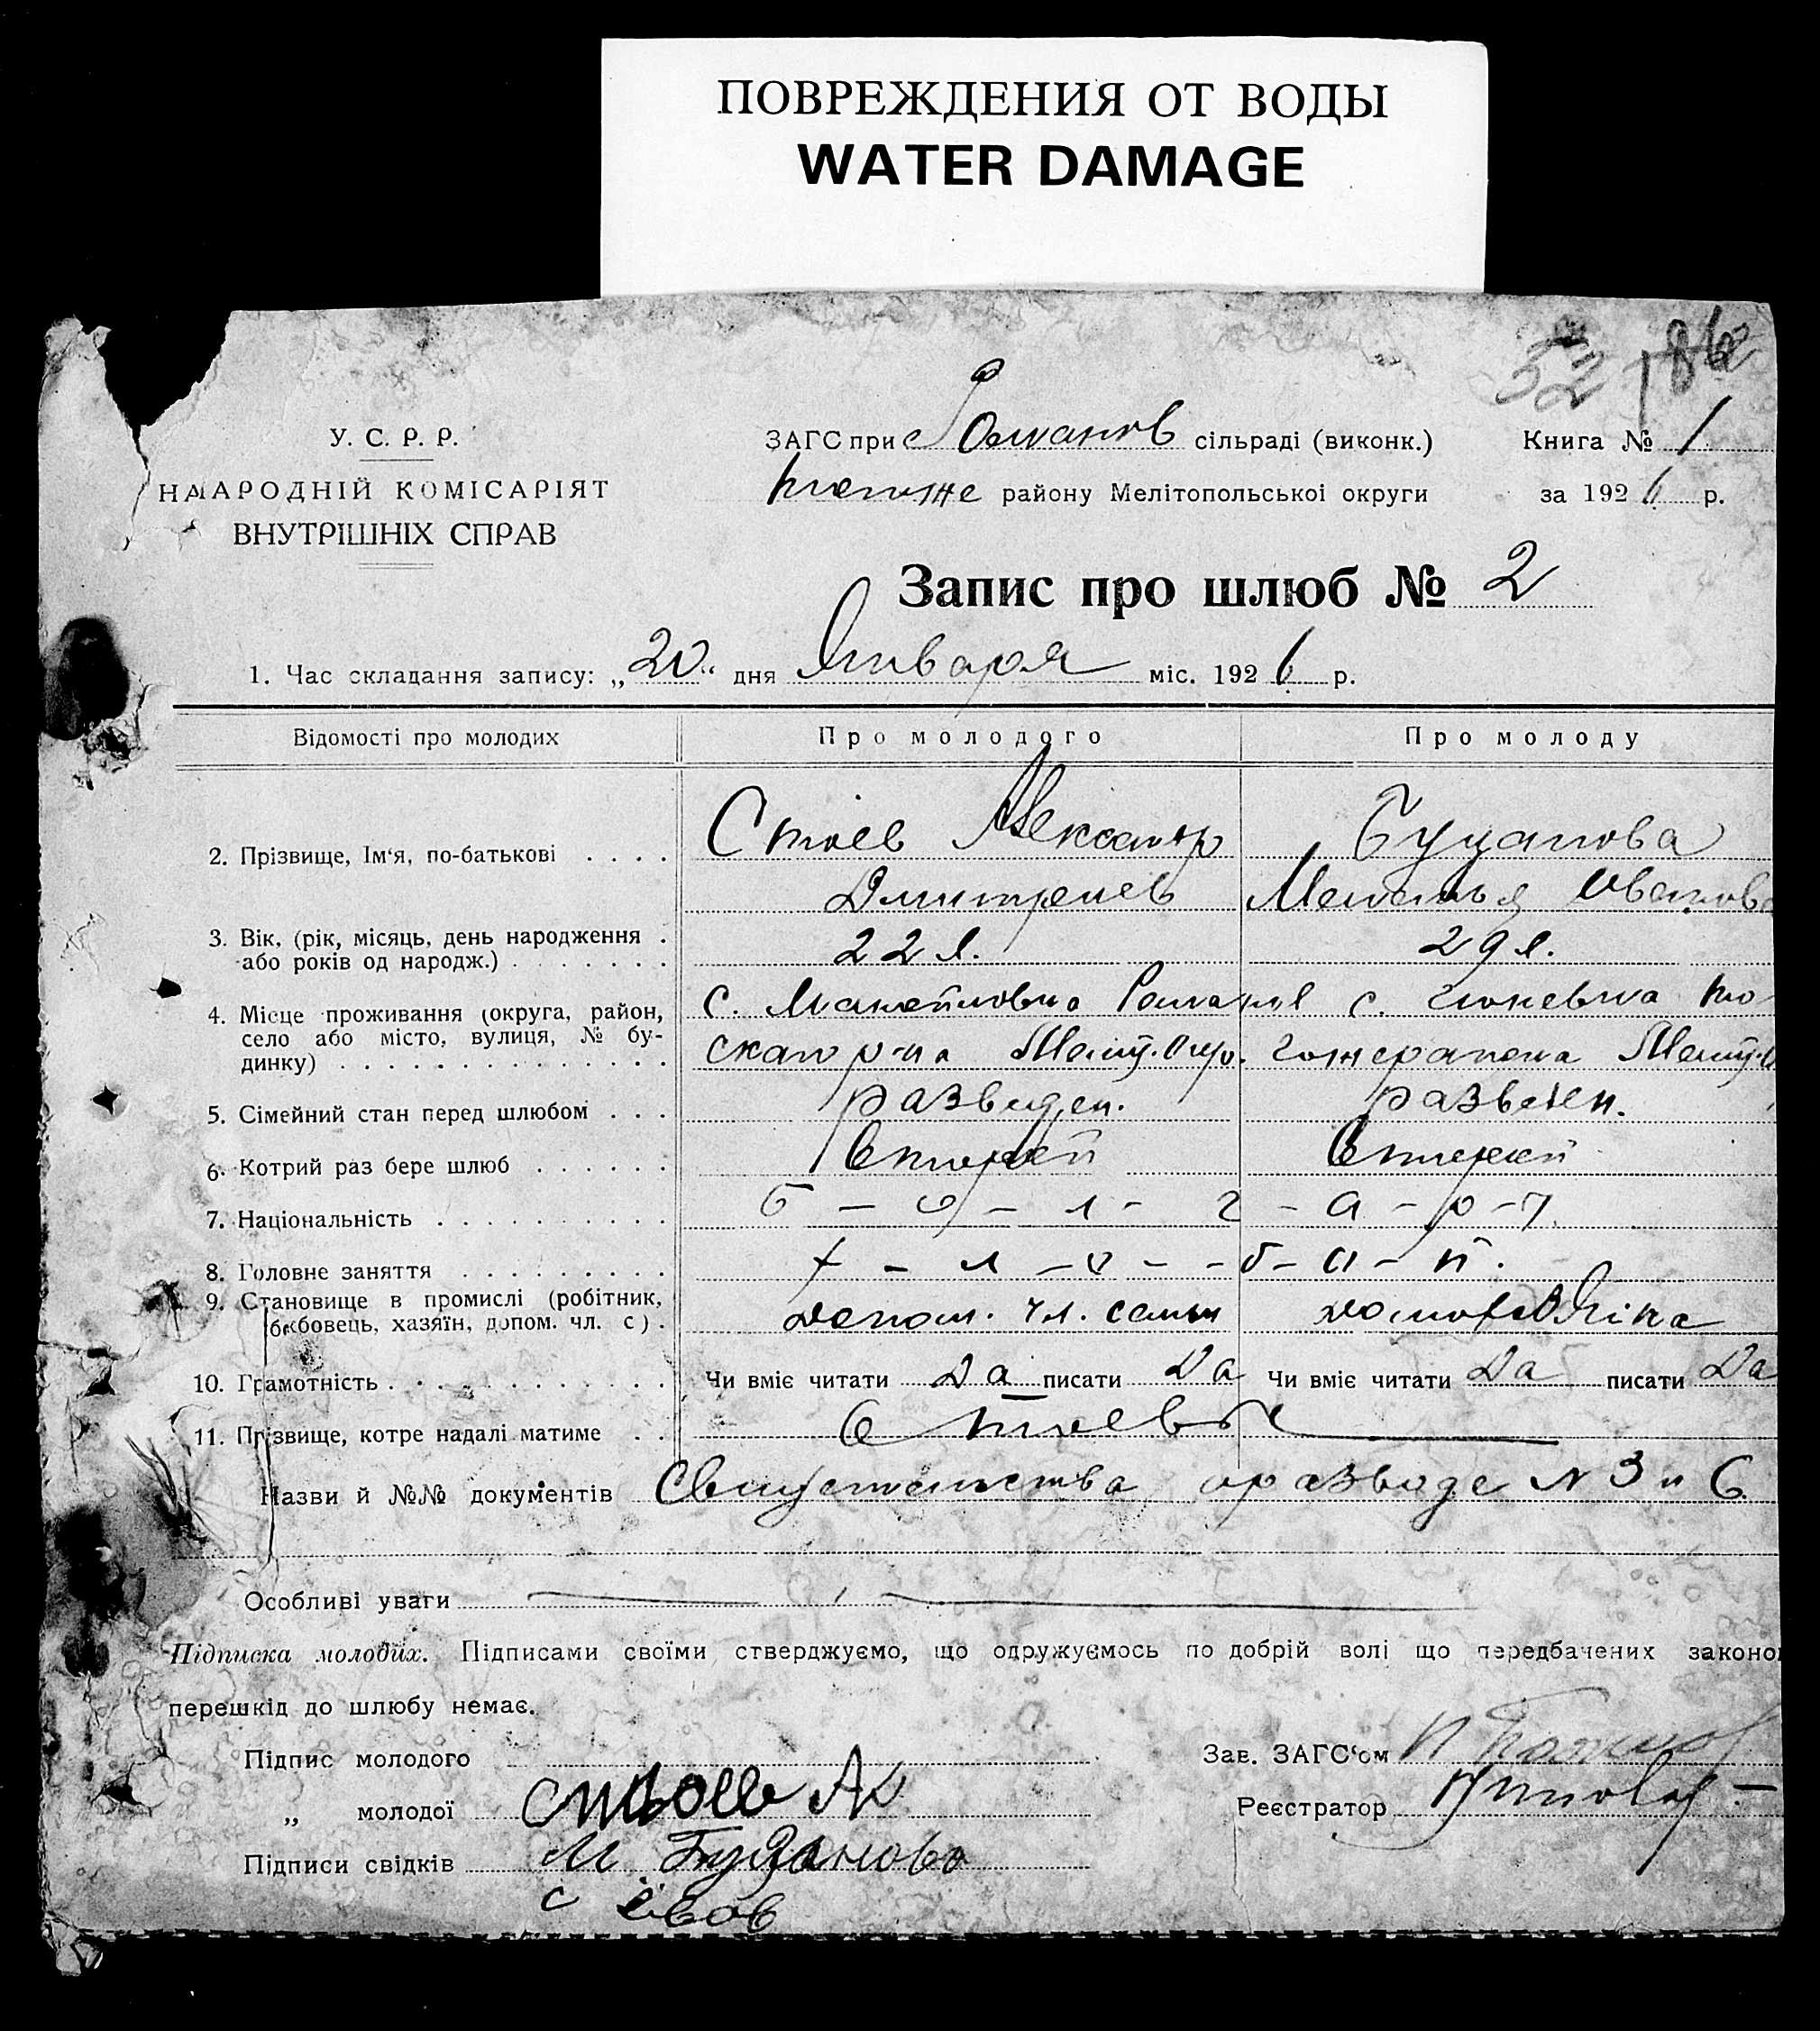 ПОВРЕЖДЕНИЯ ОТ ВОДЫ
WATER DAMAGE
52 186
У. С. Р. Р.
НААРОДНІЙ КОМІСАРІЯТ
ВНУТРІШНІХ СПРАВ
ЗАГС при с Романов сільраді (виконк.) Книга № 1
районy Мелітопольської округи за 1926 р.
Запис про шлюб № 2
1. Час складання запису: „20“ дня Января міс. 1926 р.
Відомості про молодих Про молодого Про молоду
2. Прізвище, Ім‘я, по-батькові Стоев Александр Буданова
Дмитриев Меланья Иванова
3. Вік, (рік, місяць, день народження
або років од народж.) 22 л. 29 л.
4. Місце проживання (округа, район,
село або місто, вулиця, № бу-
динку)
с. Мануйловка Рома с.
р-на Мелит. Окр.
5. Сімейний стан перед шлюбом разведен. развеden.
6. Котрий раз бере шлюб Второй Второй
7. Національність б - о - л - г - а - р - ы
8. Головне заняття х - л - е - б - о - п.
9. Становище в промислі (робітник,
службовець, хазяїн, допом. чл. с). допом. чл. семьи домохазяйка
10. Грамотність Чи вміє читати Да писати Да Чи вміє читати Да писати Да
11. Прізвище, котре надалі матиме Стоевы
Назви й №№ документів Свидетельства о разводе N 3 и 6
Особливі уваги
Підписка молодих. Підписами своїми стверджуємо, що одружуємось по добрій волі що передбачених законо
перешкід до шлюбу немає.
Підпис молодого Зав. ЗАГС‘ом
„ молодої Стоев Ал Реєстратор
Підписи свідків М Буданова